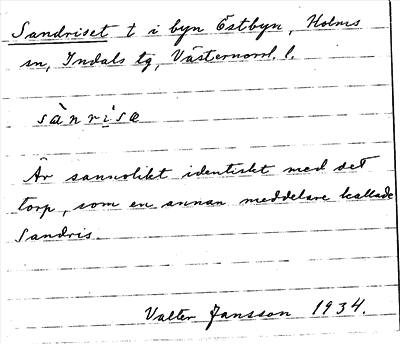 Sandriset t i byn Östbyn, Holms
sn, Indals tg, Västernorrl. l.
sànrisæ
Är sannolikt identiskt med det
torp, som en annan meddelare kallade
Sandris.
Valter Jansson 1934.